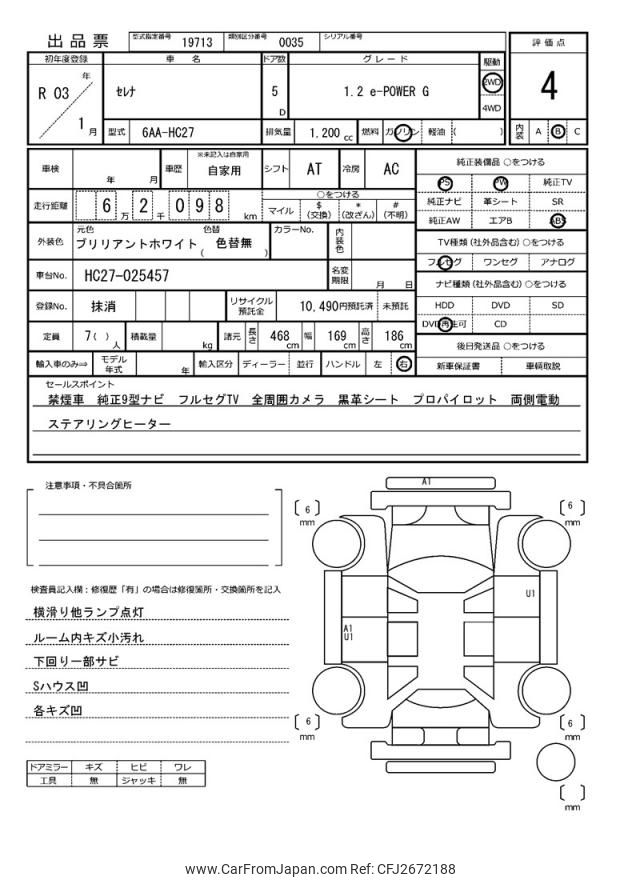 出品票 型式指定番号 19713 類別区分番号 0035 シリアル番号
評価点
4
初年度登録 車名 ドア数 グレード 駆動
R 03 年 1 月
セレナ
5 D
1.2 e-POWER G
2WD
4WD
型式 6AA-HC27 排気量 1.200 cc 燃料 ガソリン 軽油 ( )
内装 A B C
車検 年 月 車歴 ※未記入は自家用 自家用 シフト AT 冷房 AC
走行距離 6 万 2 千 0 9 8 km
○をつける
マイル $(交換) *(改ざん) #(不明)
外装色 元色 ブリリアントホワイト 色替 ( 色替無 ) カラーNo. 内装色
車台No. HC27-025457 名変期限 月 日
登録No. 抹消 リサイクル預託金 10,490円預託済 未預託
定員 7( )人 積載量 kg 諸元 長さ 468 cm 幅 169 cm 高さ 186 cm
輸入車のみ⇒ モデル年式 年 輸入区分 ディーラー 並行 ハンドル 左 右
純正装備品 ○をつける
PS PW 純正TV
純正ナビ 革シート SR
純正AW エアB ABS
TV種類(社外品含む)○をつける
フルセグ ワンセグ アナログ
ナビ種類(社外品含む)○をつける
HDD DVD SD
DVD再生可 CD
後日発送品 ○をつける
新車保証書 車輌取説
セールスポイント
禁煙車 純正9型ナビ フルセグTV 全周囲カメラ 黒革シート プロパイロット 両側電動
ステアリングヒーター
注意事項・不具合箇所
検査員記入欄：修復歴「有」の場合は修復箇所・交換箇所を記入
横滑り他ランプ点灯
ルーム内キズ小汚れ
下回り一部サビ
Sハウス凹
各キズ凹
ドアミラー キズ ヒビ ワレ
工具 無 ジャッキ 無
A1
6 mm
6 mm
U1
A1
U1
6 mm
6 mm
mm
www.CarFromJapan.com Ref: CFJ2672188